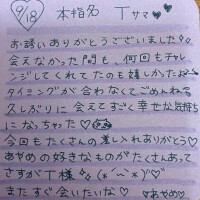 9/18 本指名 Tサマ♥♥
お誘いありがとうございました!!
会えなかった間も、何回もチャレ
ンジしてくれてたのも嬉しかった
タイミングが合わなくてごめんね
久しぶりに会えてすごく幸せな気持ち
になっちゃった♡
今回もたくさんの差し入れありがとう♡
あやめの好きなものがたくさんあって
さすがT様
またすぐ会いたいな♡
♡あやめ♡